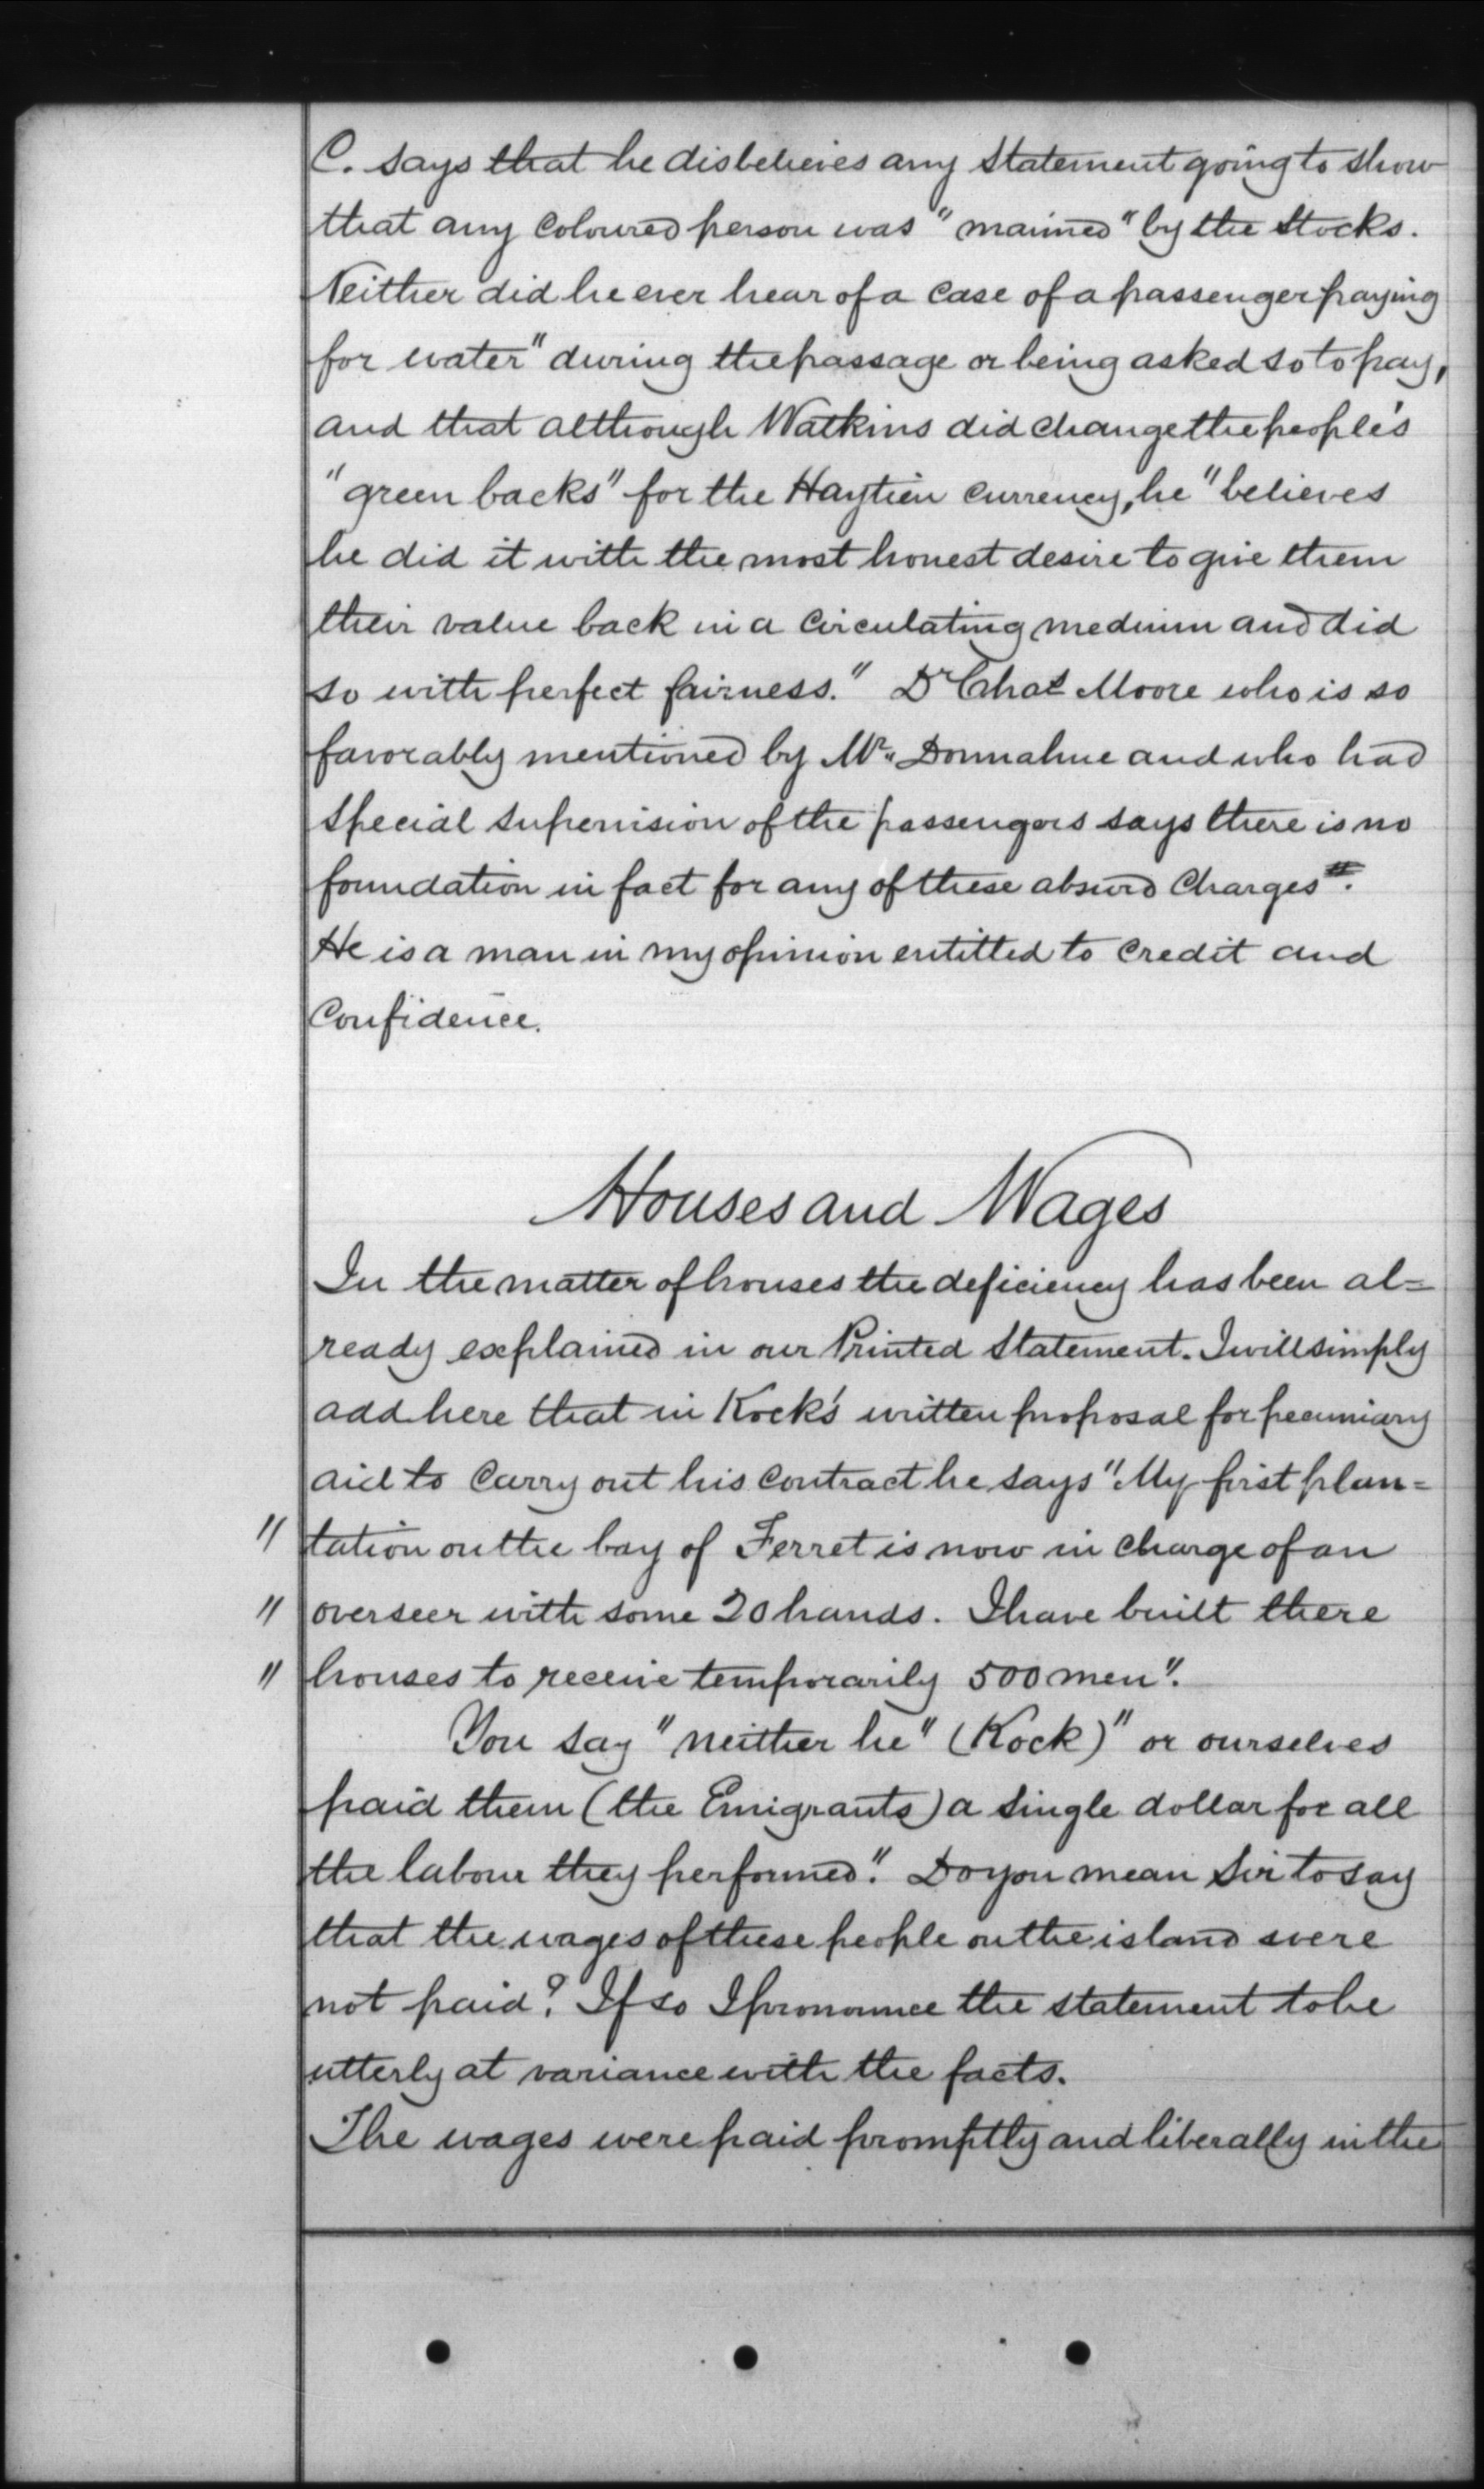 C. says that he disbelieves any statement going to show
that any coloured person was "maimed" by the stocks.
Neither did he ever hear of a case of a passenger paying
for water" during the passage or being asked so to pay,
and that although Watkins did change the people's
"green backs" for the Haytien currency, he "believes
he did it with the most honest desire to give them
their value back in a circulating medium and did
so with perfect fairness." Dr Chas Moore who is so
favorably mentioned by Mr. Donnahue and who had
special supervision of the passengers says there is no
foundation in fact for any of these absurd charges".
He is a man in my opinion entitled to credit and
confidence.
Houses and Wages
In the matter of houses the deficiency has been al=
ready explained in our Printed Statement. I will simply
add here that in Kock's written proposal for pecuniary
aid to carry out his contract he says "My first plan=
" tation on the bay of Ferret is now in charge of an
" overseer with some 20 hands. I have built there
" houses to receive temporarily 500 men".
You say "neither he" (Kock)" or ourselves
paid them (the Emigrants) a single dollar for all
the labour they performed". Do you mean Sir to say
that the wages of these people on the island were
not paid? If so I pronounce the statement to be
utterly at variance with the facts.
The wages were paid promptly and liberally in the